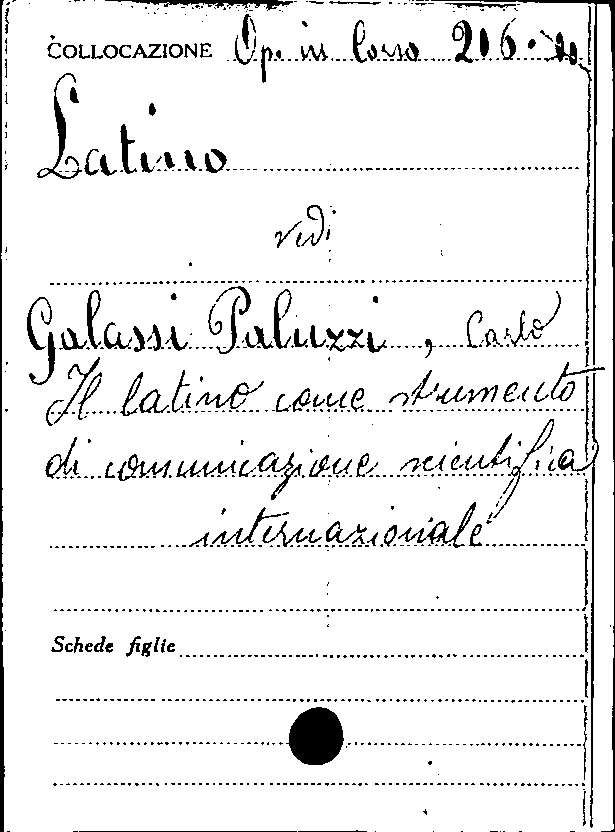 COLLOCAZIONE Op. in Corso 216.
Latino
vedi
Galassi Paluzzi, Carlo
Il latino come strumento
di comunicazione scientifica
internazionale
Schede figlie